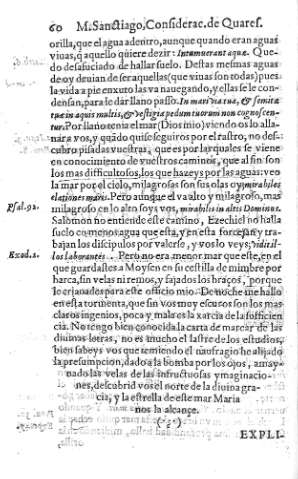 60 M. Sanctiago, Considerac. de Quares.
orilla, que el agua adentro, aunque quando eran aguas
viuas, q̃ aquello quiere dezir: Intumuerant aquæ. Que-
do desafuciado de hallar suelo. Destas mesmas aguas
deuy deuian de ser aquellas (que viuas son todas) pues
la vida a pie enxuto las va nauegando, y ellas se le con-
densan, para le dar llano passo. In mari via tua, & semitæ
tuæ in aquis multis, & vestigia pedum tuorum non cognoscen-
tur. Por llano tenia el mar (Dios mio) viendo os lo alla-
nar a vos, y quãdo quise seguiros por el rastro, no des-
cubro pisadas vuestras, que es por las quales se viene
en conocimiento de vuestros caminos, que al fin son
los mas difficultosos, los que hazeys por las aguas: veo
la mar por el cielo, milagrosas son sus olas oy, mirabiles
elationes maris. Pero aunque el va alto y milagroso, mas
Psal. 92. milagroso en lo alto soys vos, mirabilis in altis Dominus.
Salomon no entiende este camino, Ezechiel no halla
suelo con menos agua que esta, y en esta forcejan y tra-
bajan los discipulos por valerse, y vos lo veys; vidit il-
Exod. 2. los laborantes. Pero no era menor mar que este, en el
que guardastes a Moysen en su cestilla de mimbre por
barca, sin velas ni remos, y fajados los braços, porque
le criauades para este officio mio. De noche me hallo
en esta tormenta, que sin vos muy escuros son los mas
claros ingenios, poca y mala es la xarcia de la sufficien
cia. No tengo bien conocida la carta de marear de las
diuinas letras, no es mucho el lastre de los estudios,
bien sabeys vos que temiendo el naufragio he alijado
la presumpcion, dado a la bomba por los ojos, amay-
nado las velas de las infructuosas ymaginacio-
nes, descubrid vos el norte de la diuina gra-
cia, y la estrella de este mar Maria
nos la alcançe.
EXPLI-